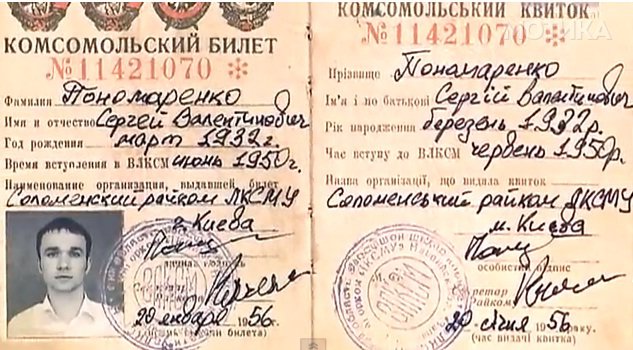 КОМСОМОЛЬСКИЙ БИЛЕТ
№ 11421070 *
Фамилия Пономаренко
Имя и отчество Сергей Валентинович
Год рождения март 1932 г.
Время вступления в ВЛКСМ июнь 1950 г.
Наименование организации, выдавшей билет
Соломенский райком ЛКСМУ
г. Киева
20 января 1956 г.
КОМСОМОЛЬСЬКИЙ КВИТОК
№ 11421070 *
МОТИКА
Прізвище Пономаренко
Ім'я і по батькові Сергій Валентинович
Рік народження березень 1932 р.
Час вступу до ВЛКСМ червень 1950 р.
Назва організації, що видала квиток
Соломенський райком ЛКСМУ
м. Києва
особистий підпис
20 січня 1956 року.
(час видачі квитка)